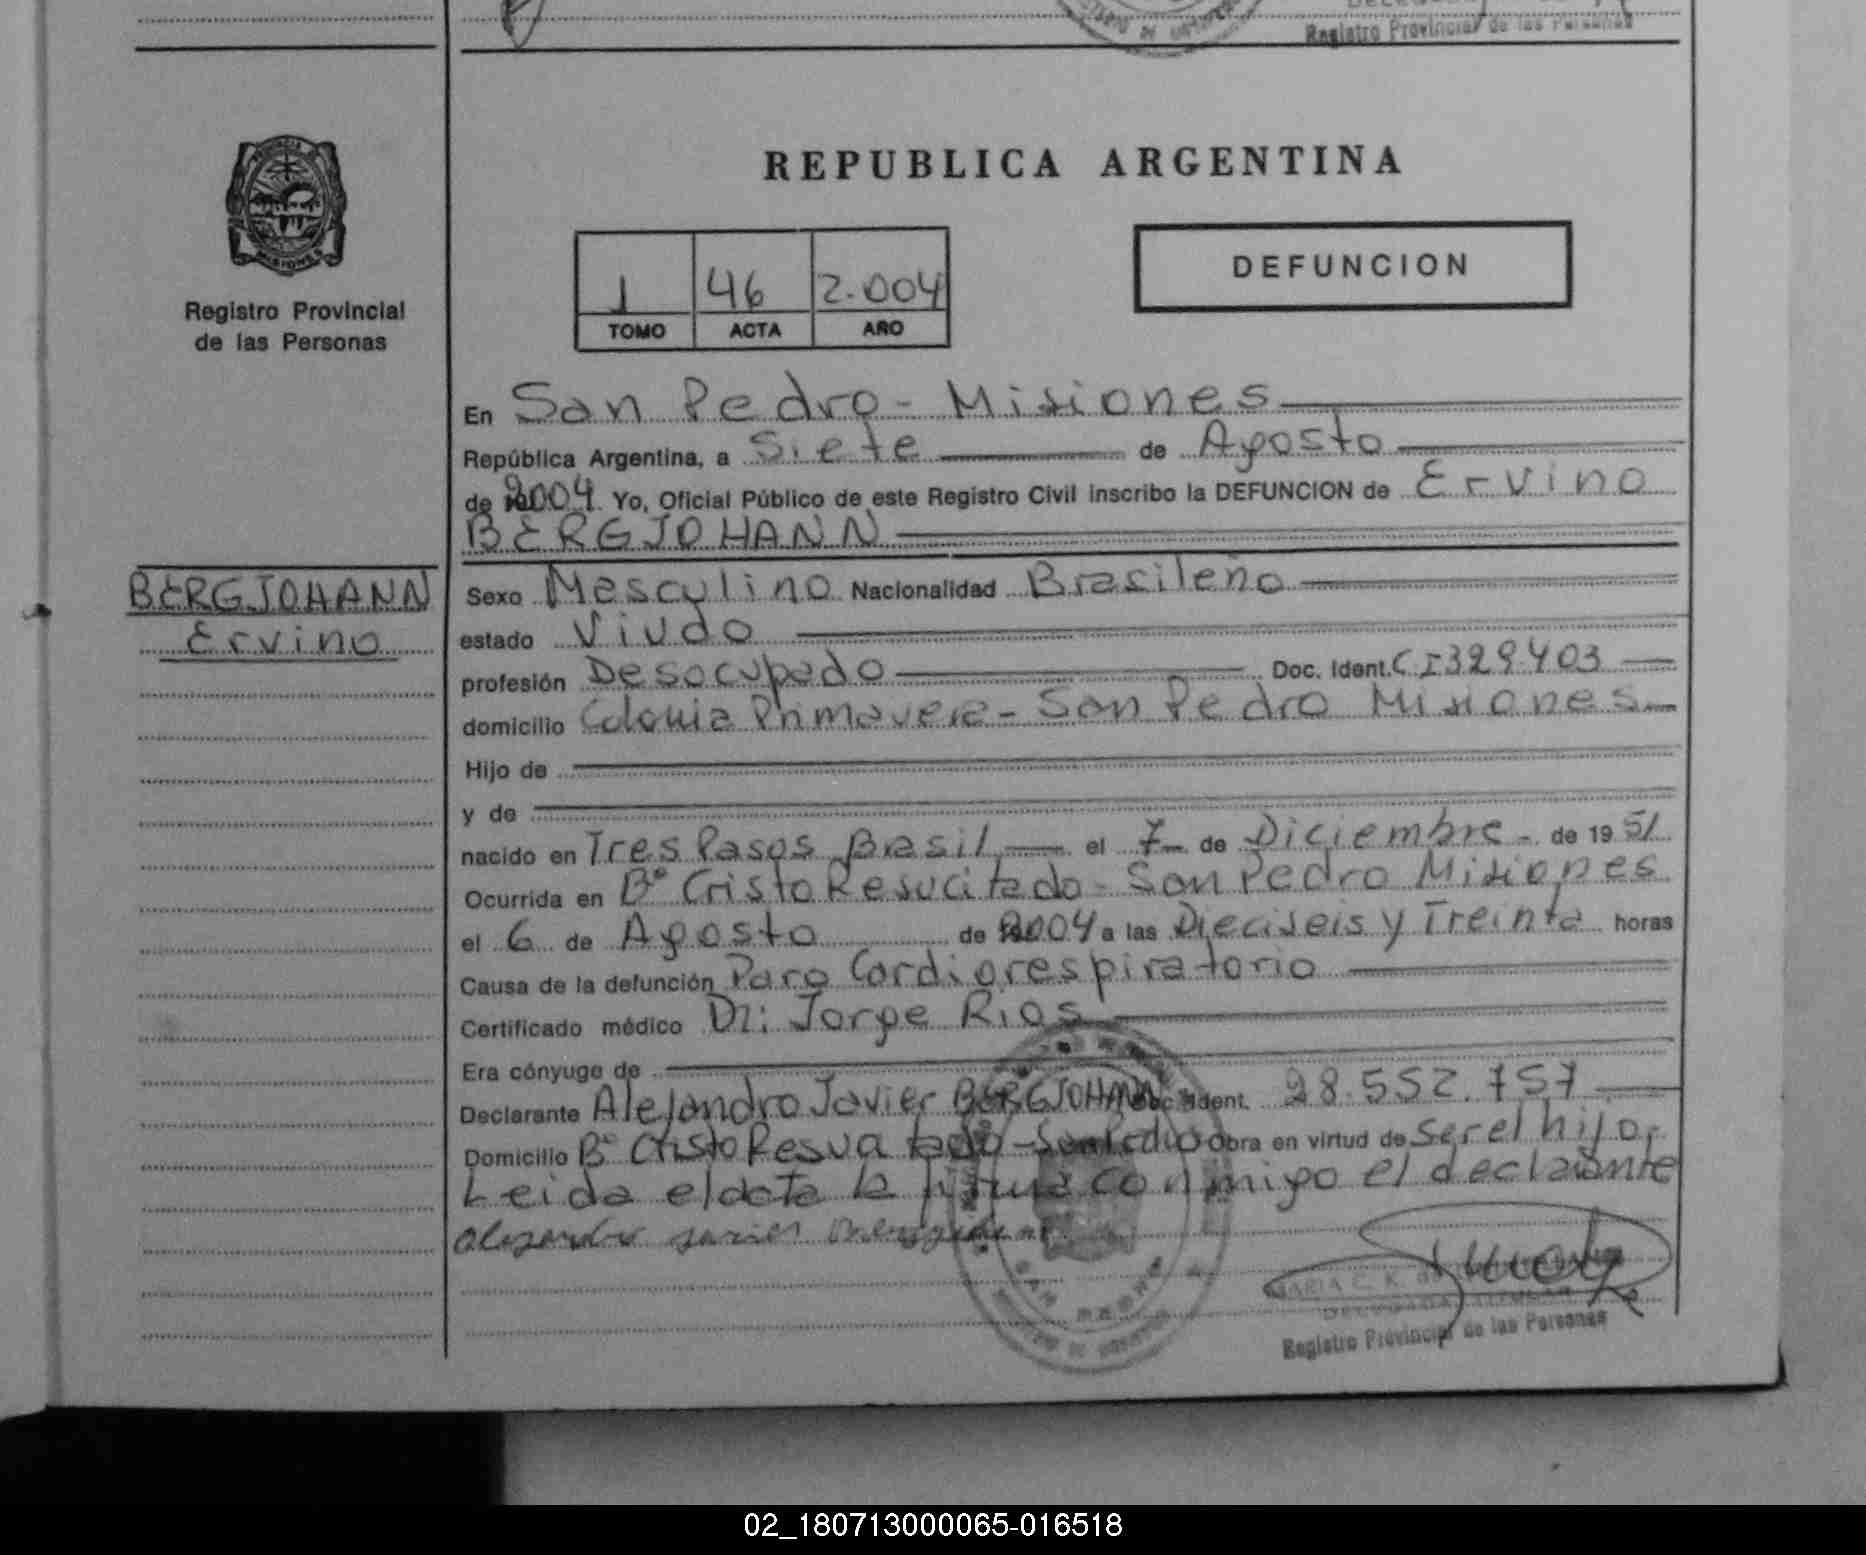 Registro Provincial de las Personas
PROVINCIA DE
MISIONES
Registro Provincial
de las Personas
REPUBLICA ARGENTINA
1 46 2.004
TOMO ACTA AÑO
DEFUNCION
En San Pedro - Misiones
República Argentina, a Siete de Agosto
de 2004. Yo, Oficial Público de este Registro Civil inscribo la DEFUNCION de Ervino
BERGJOHANN
BERGJOHANN
Ervino
Sexo Masculino Nacionalidad Brasileño
estado Viudo
profesión Desocupado Doc. Ident. CI 329.403
domicilio Colonia Primavera - San Pedro Misiones
Hijo de
y de
nacido en Tres Pasos Brasil el 7 de Diciembre - de 1951
Ocurrida en Bº Cristo Resucitado - San Pedro Misiones
el 6 de Agosto de 2004 a las Dieciseis y Treinta horas
Causa de la defunción Paro Cardiorespiratorio
Certificado médico Dr: Jorge Rios
Era cónyuge de
Declarante Alejandro Javier BERGJOHANN Doc. Ident. 28.552.757
Domicilio Bº Cristo Resucitado - San Pedro obra en virtud de ser el hijo.
Leida el acta la firma conmigo el declarante
MARIA C. K. de
DELEGADA TITULAR
Registro Provincial de las Personas
SAN PEDRO
02_180713000065-016518